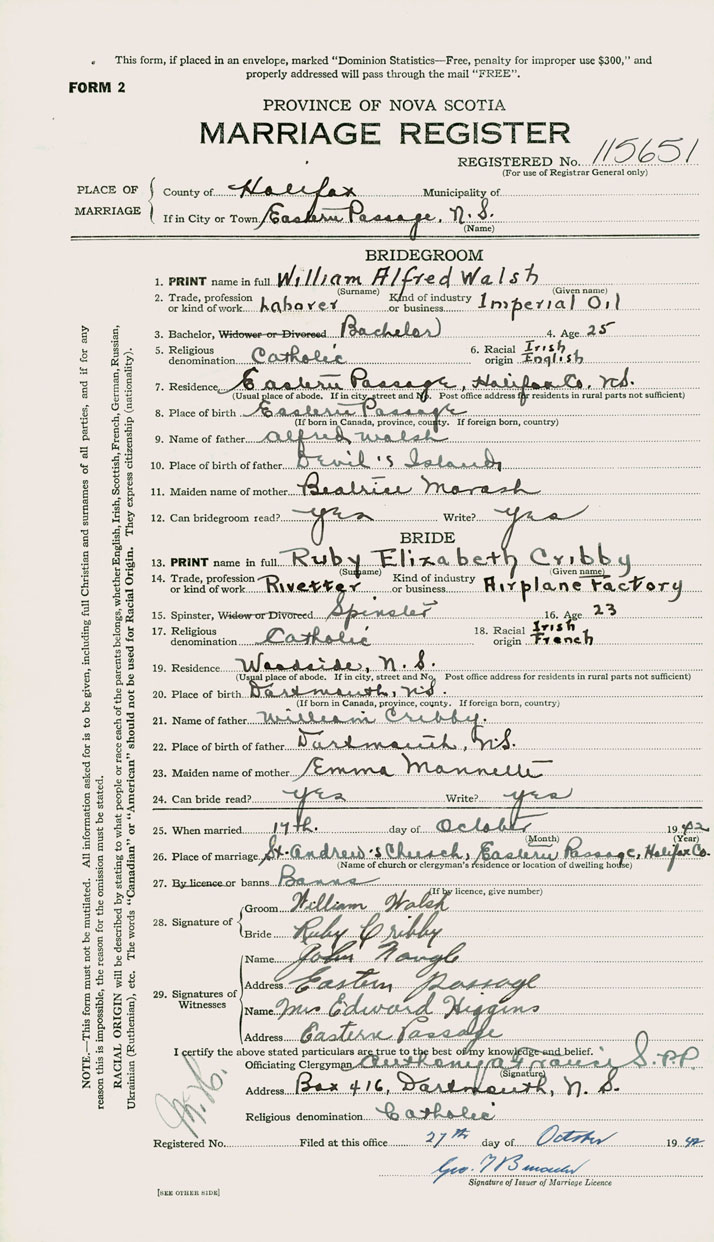 This form, if placed in an envelope, marked "Dominion Statistics—Free, penalty for improper use $300," and
properly addressed will pass through the mail "FREE".
FORM 2
PROVINCE OF NOVA SCOTIA
MARRIAGE REGISTER
REGISTERED No. 115651
(For use of Registrar General only)
PLACE OF MARRIAGE
County of Halifax Municipality of
If in City or Town Eastern Passage, N.S.
(Name)
BRIDEGROOM
1. PRINT name in full William Alfred Walsh
(Surname) (Given name)
2. Trade, profession or kind of work Laborer Kind of industry or business Imperial Oil
3. Bachelor, Widower or Divorced Bachelor 4. Age 25
5. Religious denomination Catholic 6. Racial origin Irish English
7. Residence Eastern Passage, Halifax Co. N.S.
(Usual place of abode. If in city, street and No. Post office address for residents in rural parts not sufficient)
8. Place of birth Eastern Passage
(If born in Canada, province, county. If foreign born, country)
9. Name of father Alfred Walsh
10. Place of birth of father Devil's Island
11. Maiden name of mother Beatrice Marash
12. Can bridegroom read? yes Write? yes
BRIDE
13. PRINT name in full Ruby Elizabeth Cribby
(Surname) (Given name)
14. Trade, profession or kind of work Rivetter Kind of industry or business Airplane Factory
15. Spinster, Widow or Divorced Spinster 16. Age 23
17. Religious denomination Catholic 18. Racial origin Irish French
19. Residence Woodside, N.S.
(Usual place of abode. If in city, street and No. Post office address for residents in rural parts not sufficient)
20. Place of birth Dartmouth, N.S.
(If born in Canada, province, county. If foreign born, country)
21. Name of father William Cribby.
22. Place of birth of father Dartmouth, N.S.
23. Maiden name of mother Emma Mannette
24. Can bride read? yes Write? yes
25. When married 17th. day of October 1942
(Month) (Year)
26. Place of marriage St. Andrew's Church, Eastern Passage, Halifax Co.
(Name of church or clergyman's residence or location of dwelling house)
27. By licence or banns Banns
(If by licence, give number)
28. Signature of Groom William Walsh
Bride Ruby Cribby
29. Signatures of Witnesses
Name John Naugle
Address Eastern Passage
Name Mrs Edward Higgins
Address Eastern Passage
I certify the above stated particulars are true to the best of my knowledge and belief.
Officiating Clergyman P.P.
(Signature)
Address Box 416, Dartmouth, N.S.
Religious denomination Catholic
Registered No. Filed at this office 27th day of October 1942
Geo.
Signature of Issuer of Marriage Licence
[SEE OTHER SIDE]
NOTE.—This form must not be mutilated. All information asked for is to be given, including full Christian and surnames of all parties, and if for any
reason this is impossible, the reason for the omission must be stated.
RACIAL ORIGIN will be described by stating to what people or race each of the parents belongs, whether English, Irish, Scottish, French, German, Russian,
Ukrainian (Ruthenian), etc. The words "Canadian" or "American" should not be used for Racial Origin. They express citizenship (nationality).